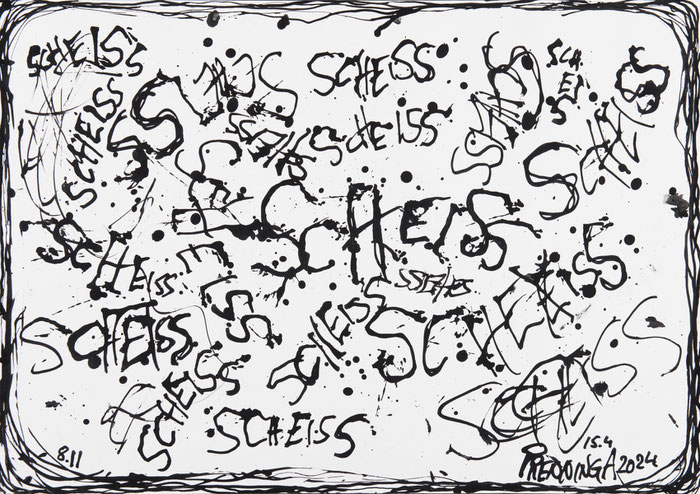 SCHEISS
SCHEISS
SCHEISS
SCHEISS
SCH
EI
S
SCHEISS
SCHEISS
SCHEISS
SCHEISS
SCHEISS
SCHEISS
SCHEISS
SCHEISS
SCHEISS
SCHEISS
SCHEISS
SCHEISS
SCHEISS
SCHEISS
8.11
15.4
2024